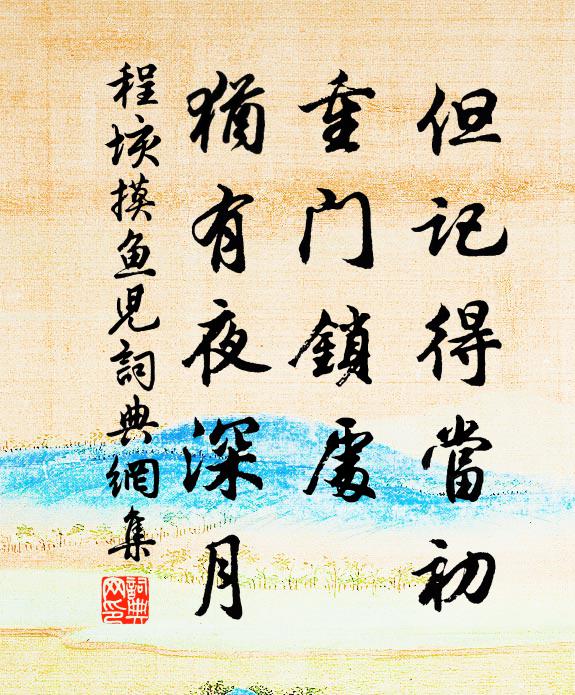 但記得當初
重門鎖處
猶有夜深月
程垓摸魚児詞典網集
詞典网印